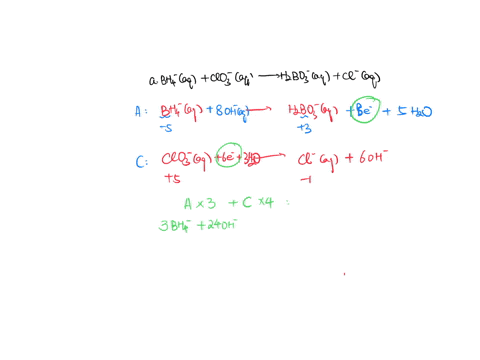 a BH₄⁻(aq) + ClO₃⁻(aq) ⟶ H₂BO₃⁻(aq) + Cl⁻(aq)
A: BH₄⁻(aq) + 8OH⁻(aq) ⟶ H₂BO₃⁻(aq) + 8e⁻ + 5H₂O
-5 +3
C: ClO₃⁻(aq) + 6e⁻ + 3H₂O ⟶ Cl⁻(aq) + 6OH⁻
+5 -1
A × 3 + C × 4 :
3BH₄⁻ + 24OH⁻